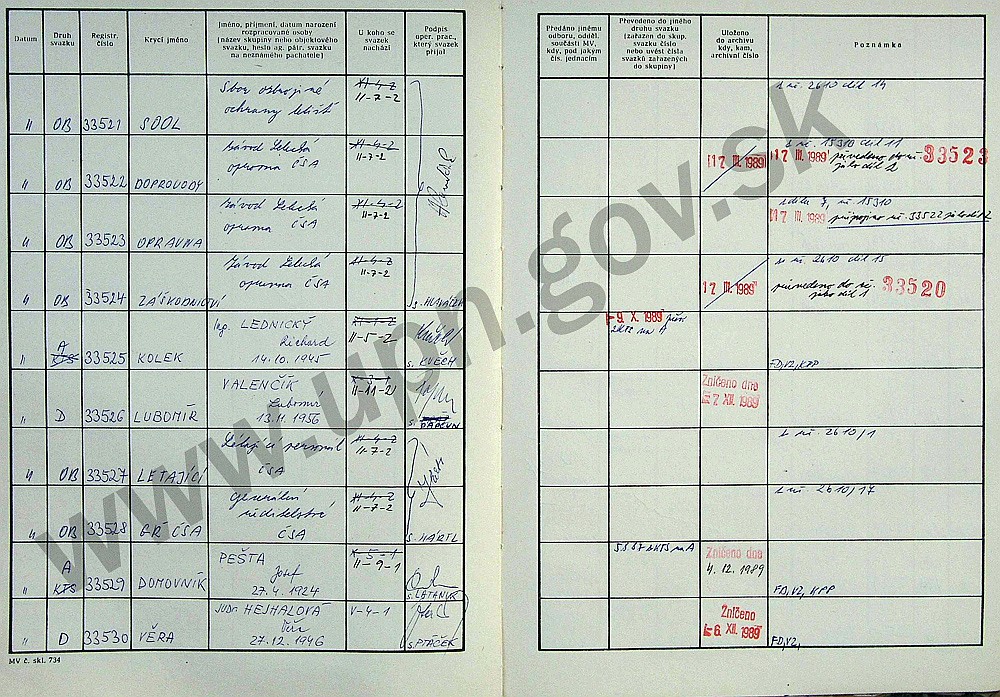 Datum
Druh svazku
Registr. číslo
Krycí jméno
Jméno, příjmení, datum narození rozpracované osoby
(název skupiny nebo objektového svazku, heslo ag. pátr. svazku na neznámého pachatele)
U koho se svazek nachází
Podpis oper. prac., který svazek přijal
Předáno jinému odboru, odděl. součásti MV, kdy, pod jakým čís. jednacím
Převedeno do jiného druhu svazku (zařazen do skup. svazku číslo nebo uvést čísla svazků zařazených do skupiny)
Uloženo do archivu kdy, kam, archivní číslo
Poznámka
" OB 33521 SOOL Sbor ozbrojené ochrany letišť XI-4-2 II-7-2 z ič. 2610 díl 14
" OB 33522 DOPROVODY Závod Letecká opravna ČSA XI-4-2 II-7-2 17 III. 1989 z ič. 15310 díl 11 17 III. 1989 převedeno do 33523 jako díl 2
" OB 33523 OPRAVNA Závod Letecká opravna ČSA XI-4-2 II-7-2 15310 17 III. 1989 připojeno 33522 jako díl 2
" OB 33524 ZÁŠKODNICTVÍ Závod Letecká opravna ČSA XI-4-2 II-7-2 s. HLAVÁČEK 17 III. 1989 2610 díl 15 převedeno do 33520 jako díl 1
" A KTS 33525 KOLEK Ing. LEDNICKÝ Richard 14.10.1945 II-5-2 s. KVĚCH 9. X. 1989 z KTS na A FD,VZ,KPP
" D 33526 LUBOMÍR VALENČÍK Lubomír 13.11.1956 II-11-2 Zničeno dne 7 XII. 1989
" OB 33527 LÉTAJÍCÍ Létající personál ČSA XI-4-2 II-7-2 z ič. 2610/1
" OB 33528 GŘ ČSA Generální ředitelství ČSA XI-4-2 II-7-2 s. HÁRTL z ič. 2610/17
" A KTS 33529 DOMOVNÍK PEŠTA Josef 27.4.1924 X-5-1 II-9-1 s. LETANUK z KTS na A Zničeno dne 4.12.1989 FD,VZ,KPP
" D 33530 VĚRA JUDr. HEJHALOVÁ Věra 27.12.1946 V-4-1 s. PTÁČEK Zničeno 6. XII. 1989 FD,VZ,
MV č. skl. 734
www.upn.gov.sk